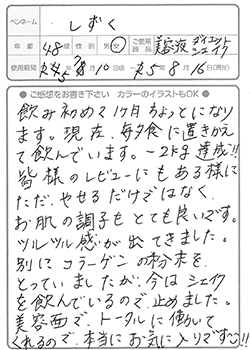 ペンネーム しずく
年齢 48歳 性別 男・女 ご使用商品 美容液ダイエットシェイク
使用期間 年 月10日頃 ~ 25年8月16日(現在)
●ご感想をお書き下さい カラーのイラストもOK●
飲み初めて1ヶ月ちょっとになり
ます。現在、毎夕食に置きかえ
て飲んでいます。-2kg達成!!
皆様のレビューにもある様に
ただ、やせるだけではなく、
お肌の調子もとても良いです。
ツルツル感が出てきました。
別にコラーゲンの粉末を
とっていましたが、今はシェイク
を飲んでいるので止めました。
美容面で、トータルに働いて
くれるので、本当にお気に入りです!!